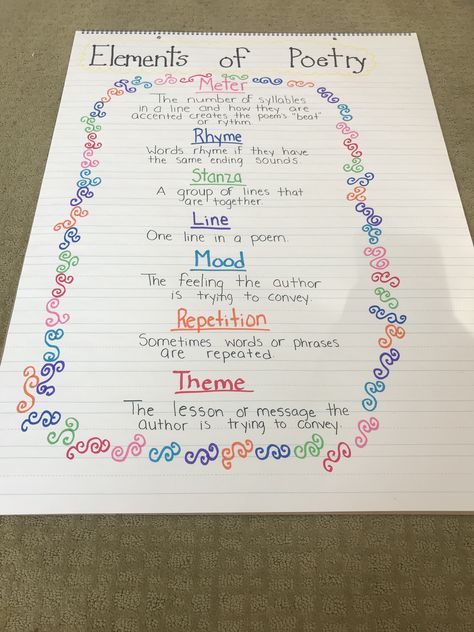 Elements of Poetry
Meter
The number of syllables
in a line and how they are
accented creates the poem's "beat"
or rythm
Rhyme
Words rhyme if they have
the same ending sounds.
Stanza
A group of lines that
are together.
Line
One line in a poem.
Mood
The feeling the author
is trying to convey.
Repetition
Sometimes words or phrases
are repeated.
Theme
The lesson or message the
author is trying to convey.